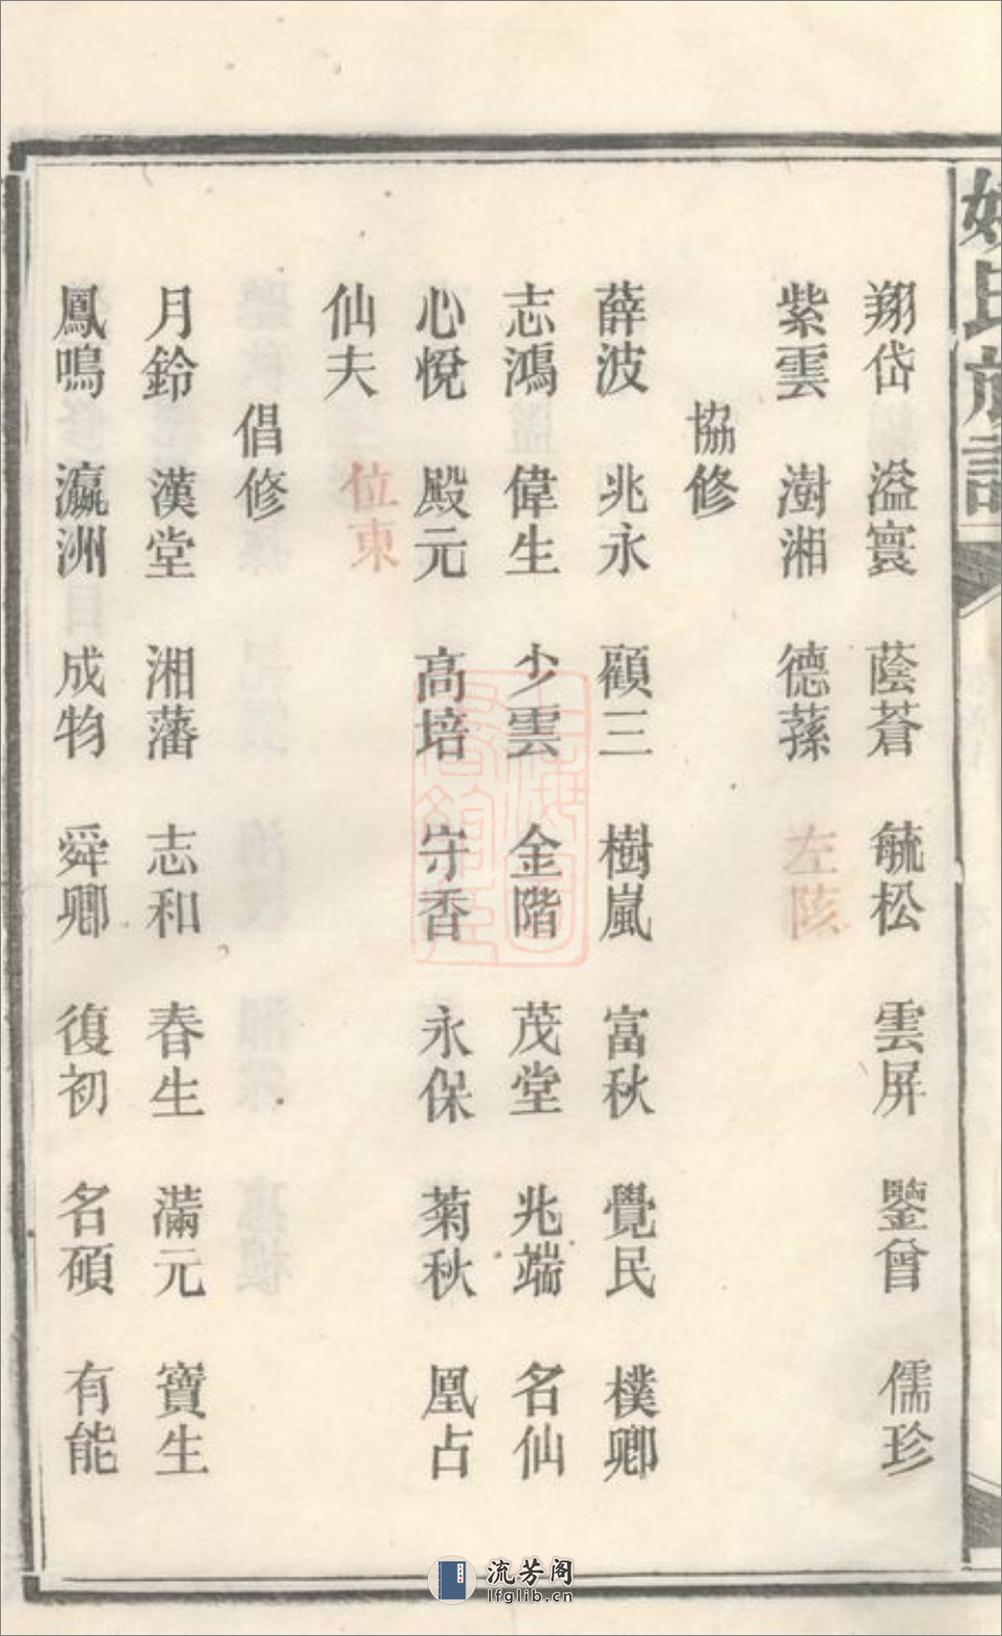 氏族譜
翔岱 溢寰 蔭蒼 毓松 雲屏 鑒曾 儒珍
紫雲 澍湘 德蓀 左陔
協修
薛波 兆永 顧三 樹嵐 富秋 覺民 樸卿
志鴻 偉生 少雲 金階 茂堂 兆端 名仙
心悅 殿元 高培 守香 永保 菊秋 凰占
仙夫 位東
倡修
月鈴 漢堂 湘藩 志和 春生 滿元 寶生
鳳鳴 瀛洲 成物 舜卿 復初 名碩 有能
流芳阁
lfglib.cn